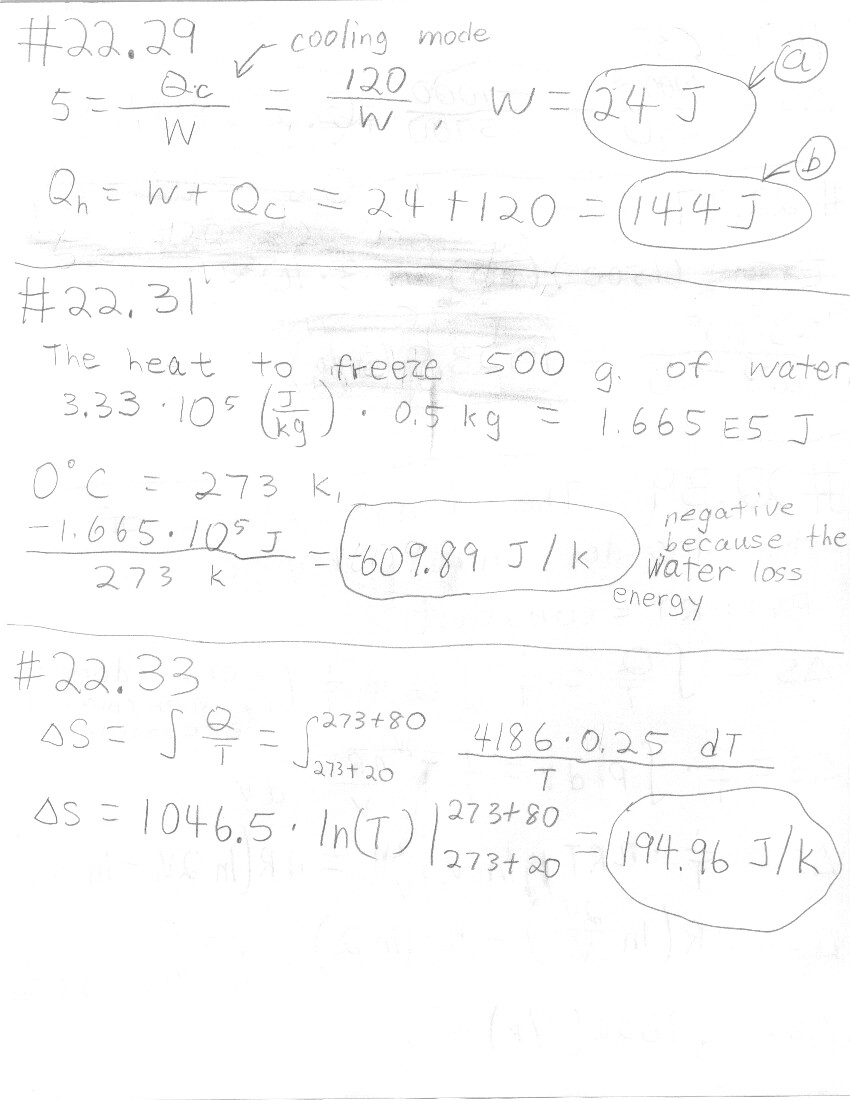 #22.29
cooling mode
5 = Qc/W = 120/W, W = 24 J (a)
Qh = W + Qc = 24 + 120 = 144 J (b)
#22.31
The heat to freeze 500 g. of water
3.33 · 10⁵ (J/kg) · 0.5 kg = 1.665 E5 J
0°C = 273 K,
-1.665 · 10⁵ J / 273 K = -609.89 J/K
negative
because the
water loss
energy
#22.33
ΔS = ∫ Q/T = ∫_{273+20}^{273+80} 4186 · 0.25 dT / T
ΔS = 1046.5 · ln(T) |_{273+20}^{273+80} = 194.96 J/K